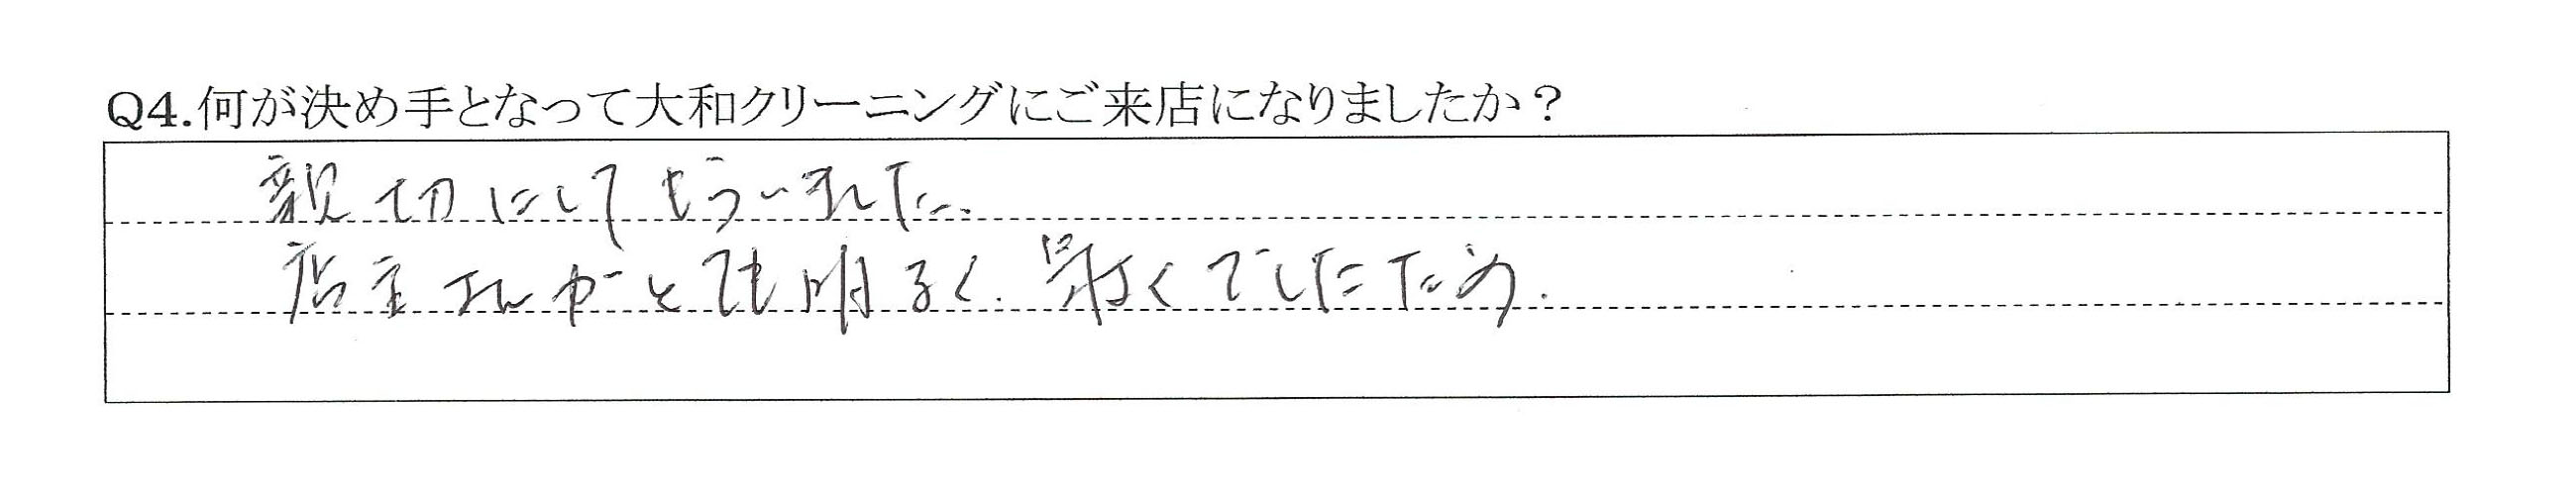 Q4.何が決め手となって大和クリーニングにご来店になりましたか？
親切にしてもらいました。
店主さんがとても明るく、気さくでしたため.